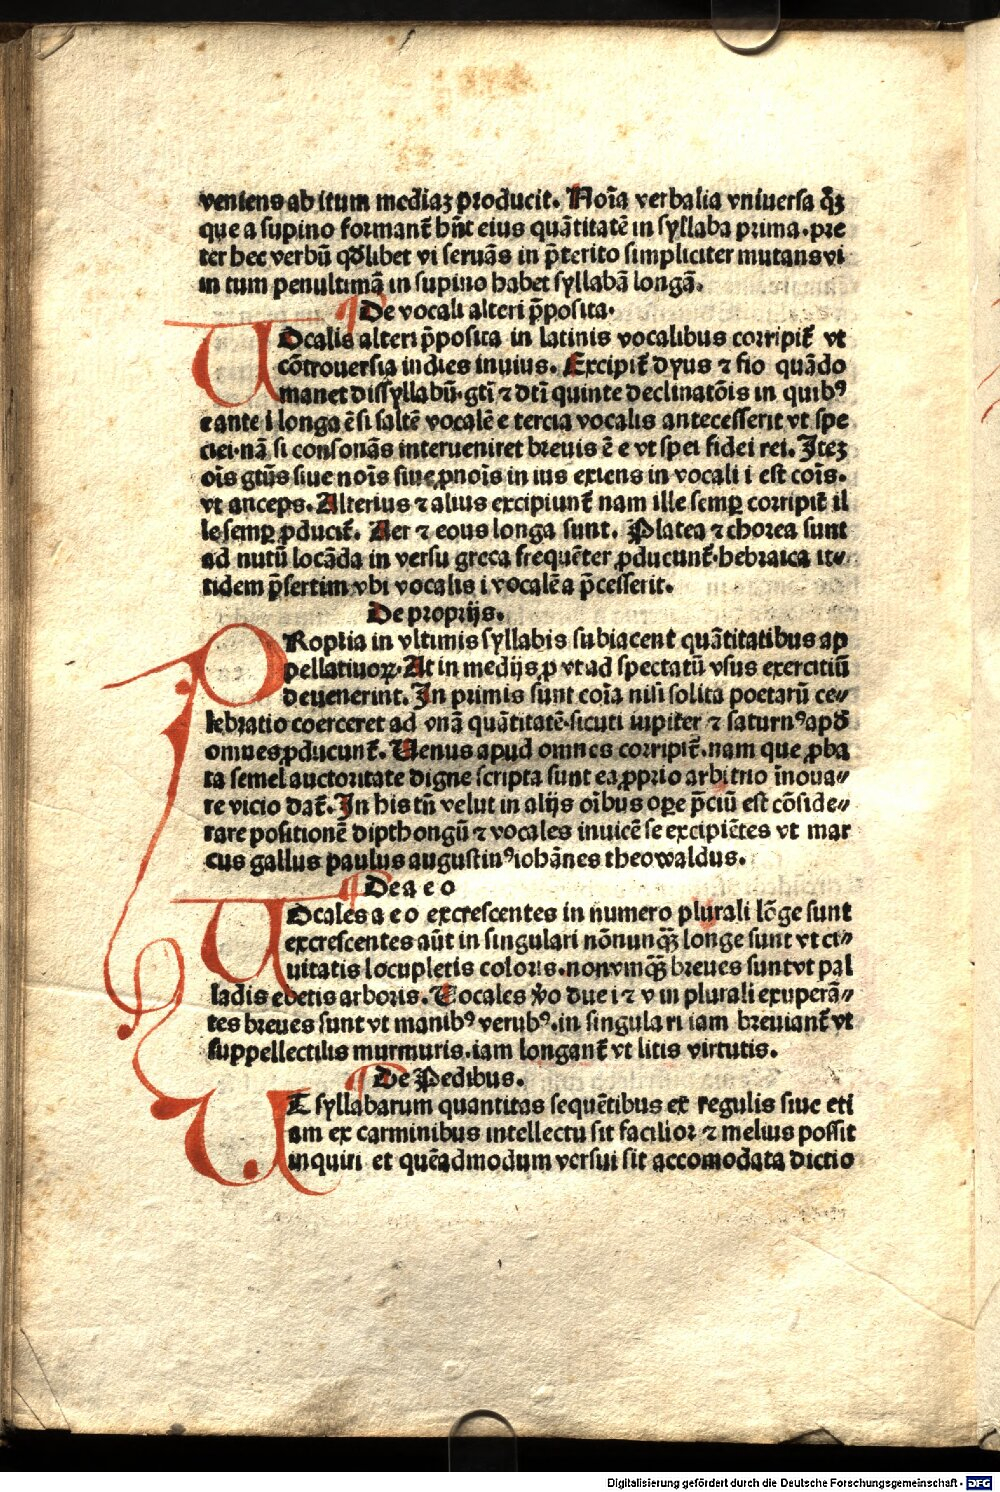 veniens ab itum mediaꝫ producit. Noīa verbalia vniuersa q̄ꝫ
que a supino formant᷑ hn̄t eius quātitatē in syllaba prima. pre
ter hec verbū qđlibet vi seruās in p̄terito simpliciter mutans vi
in tum penultimā in supino habet syllabā longā.
¶ De vocali alteri p̄posita.
VOcalis alteri p̄posita in latinis vocalibus corripit᷑ vt
cōtrouersia indies inuius. Excipit᷑ dyus ⁊ fio quādo
manet dissyllabū. gtī ⁊ dtī quinte declinatōis in quibꝰ
e ante i longa ē si saltē vocalē e tercia vocalis antecesserit vt spe
ciei. nā si consonās interueniret breuis ē e vt spei fidei rei. Iteꝫ
oīs gtūs siue noīs siue ꝓnoīs in ius exiens in vocali i est coīs.
vt anceps. Alterius ⁊ alius excipiunt᷑ nam ille semꝑ corripit᷑ il
le semꝑ ꝓducit᷑. Aer ⁊ eous longa sunt. Platea ⁊ chorea sunt
ad nutū locāda in versu greca frequēter ꝓducunt᷑. hebraica it⸗
tidem p̄sertim vbi vocalis i vocalē a p̄cesserit.
De proprijs.
PRopria in vltimis syllabis subiacent quātitatibus ap
pellatiuoꝝ. At in medijs ꝓ vt ad spectatū vsus exercitiū
deuenerint. In primis sunt coīa nisi solita poetarū ce⸗
lebratio coerceret ad vnā quātitatē. sicuti iupiter ⁊ saturnꝰ apđ
omnes ꝓducunt᷑. Uenus apud omnes corripit᷑. nam que ꝓba
ta semel auctoritate digne scripta sunt ea ꝓprio arbitrio īnoua⸗
re vicio dat᷑. In his tn̄ velut in alijs oībus oꝑe p̄ciū est cōside⸗
rare positionē dipthongū ⁊ vocales inuicē se excipiētes vt mar
cus gallus paulus augustinꝰ iohānes theowaldus.
¶ De a e o
VOcales a e o excrescentes in numero plurali lōge sunt
excrescentes aūt in singulari nōnunq̄ꝫ longe sunt vt ci⸗
uitatis locupletis coloris. nonvmq̄ꝫ breues sunt vt pal
ladis ebetis arboris. Uocales v̄o due i ⁊ v in plurali exuperā⸗
tes breues sunt vt manibꝰ verubꝰ. in singulari iam breuiant᷑ vt
suppellectilis murmuris. iam longant᷑ vt litis virtutis.
¶ De Pedibus.
UT syllabarum quantitas sequētibus ex regulis siue eti
am ex carminibus intellectu sit facilior ⁊ melius possit
inquiri et quēadmodum versui sit accomodata dictio
Digitalisierung gefördert durch die Deutsche Forschungsgemeinschaft - DFG